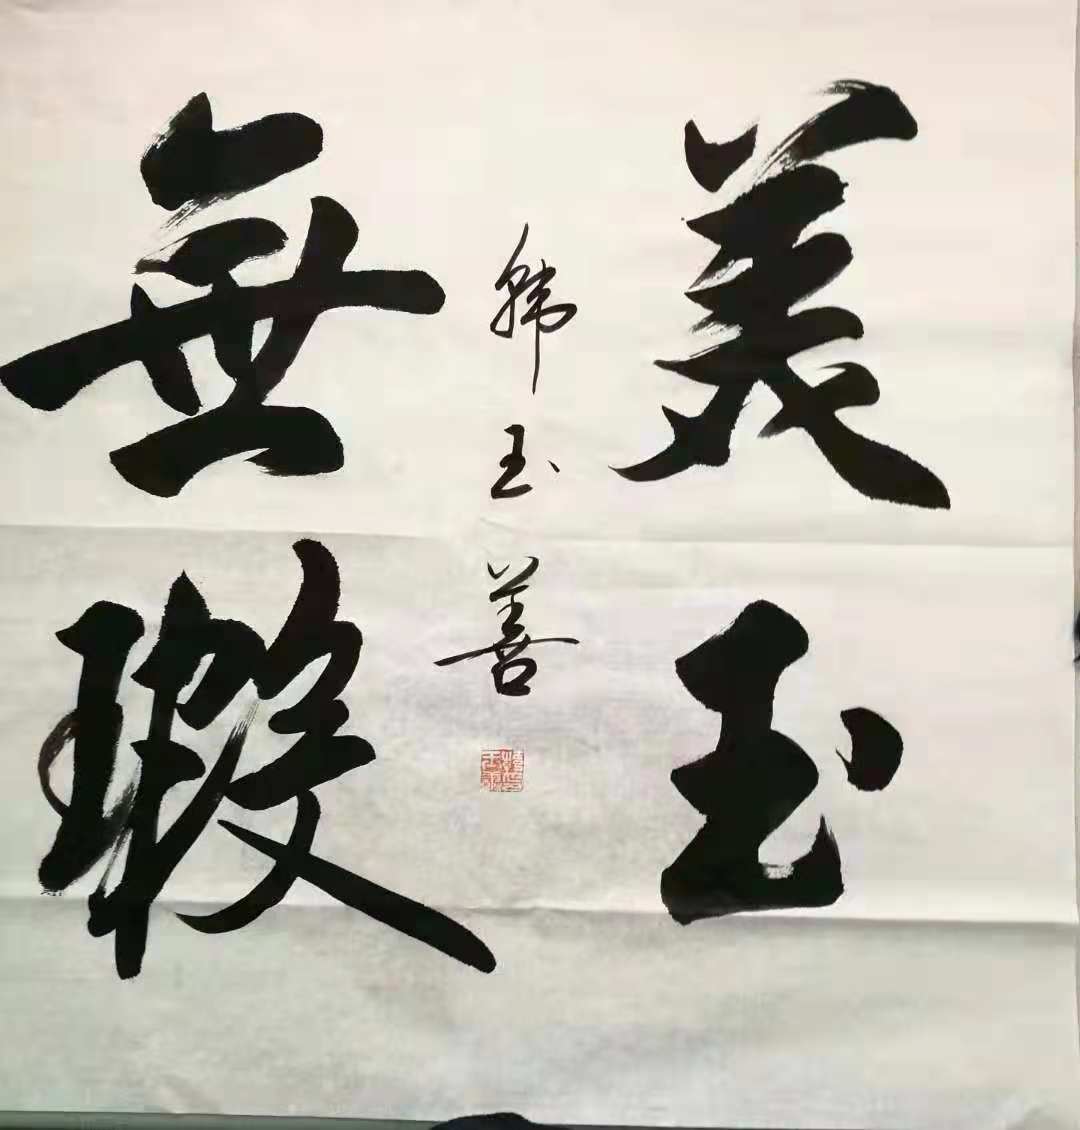 美玉
韩玉善
無瑕